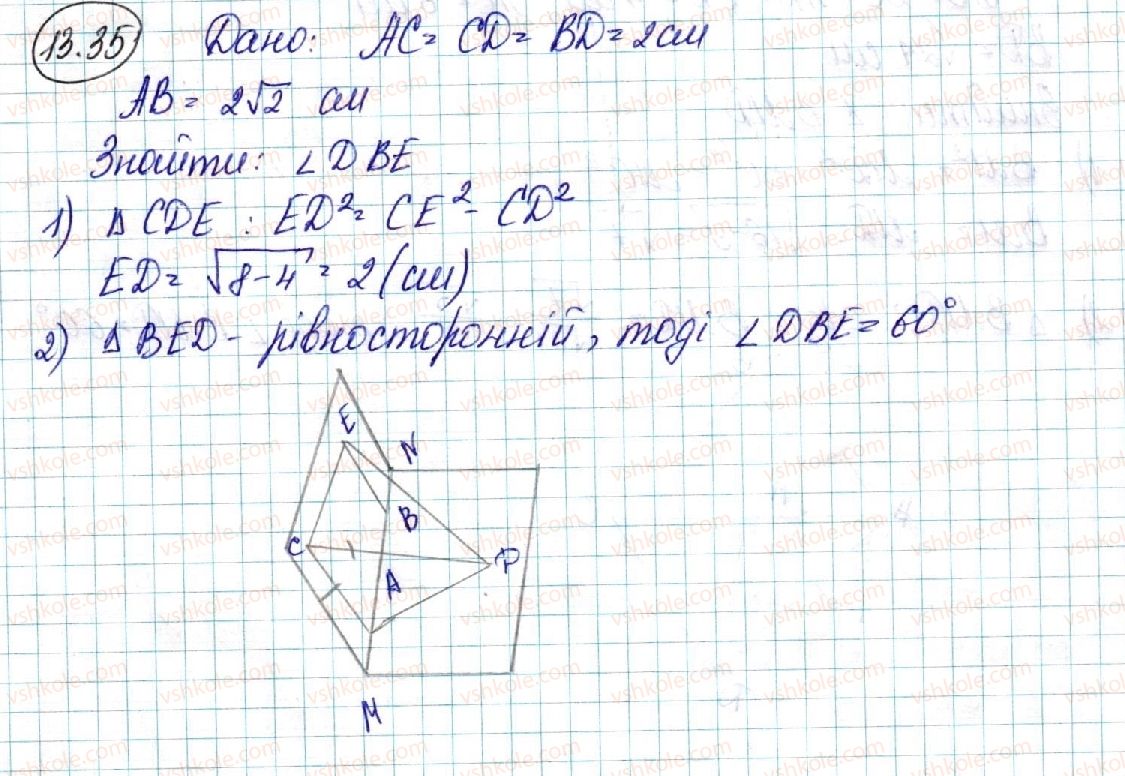 13.35 Дано: AC = CD = BD = 2 см
AB = 2√2 см
Знайти: ∠DBE
1) Δ CDE : ED² = CE² - CD²
ED = √8-4 = 2 (см)
2) Δ BED - рівносторонній, тоді ∠DBE = 60°
E
N
B
C
D
A
M